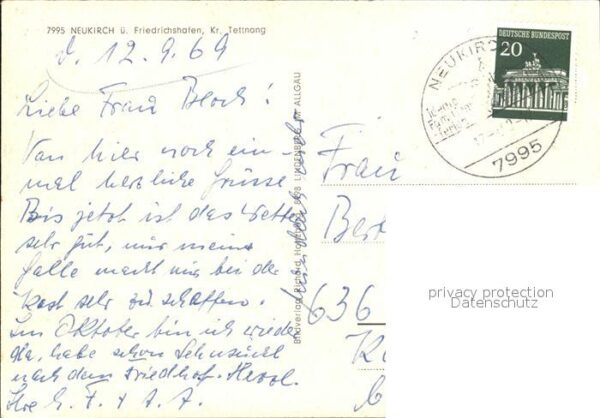 7995 NEUKIRCH ü. Friedrichshafen, Kr. Tettnang
d. 12.9.69
Liebe Frau Bloch!
Von hier noch ein-
mal herzliche Grüsse
Bis jetzt ist das Wetter
sehr gut, nur meine
Galle macht mir bei der
Kost sehr zu schaffen.
Im Oktober bin ich wieder
da, habe schon Sehnsucht
nach dem Friedhof. Herzl.
Ihre
Bildverlag Richard LINDENBERG IM ALLGÄU
DEUTSCHE BUNDESPOST
20
NEUKIRCH
7995
Frau
Bert
636
privacy protection
Datenschutz